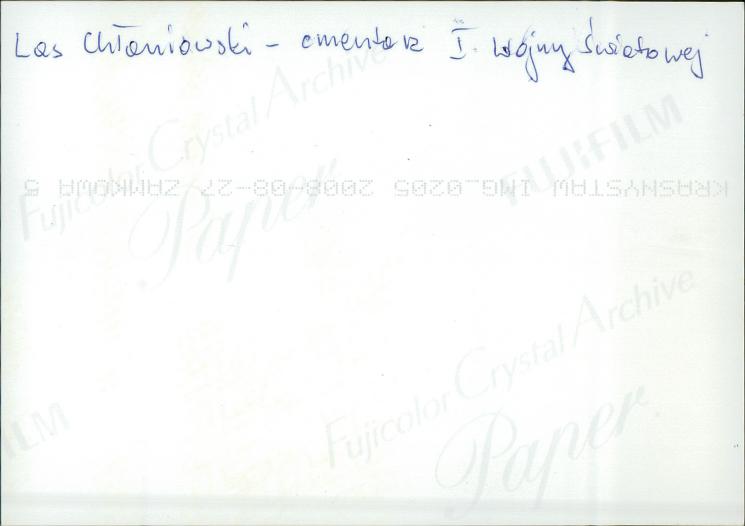 Las Chłaniowski - cmentarz I wojny Światowej
Fujicolor Crystal Archive
Paper
FUJIFILM
KRASNYSTAW IMG_0205 2008-08-27 ZAMKOWA 5
Fujicolor Crystal Archive
Paper
ILM